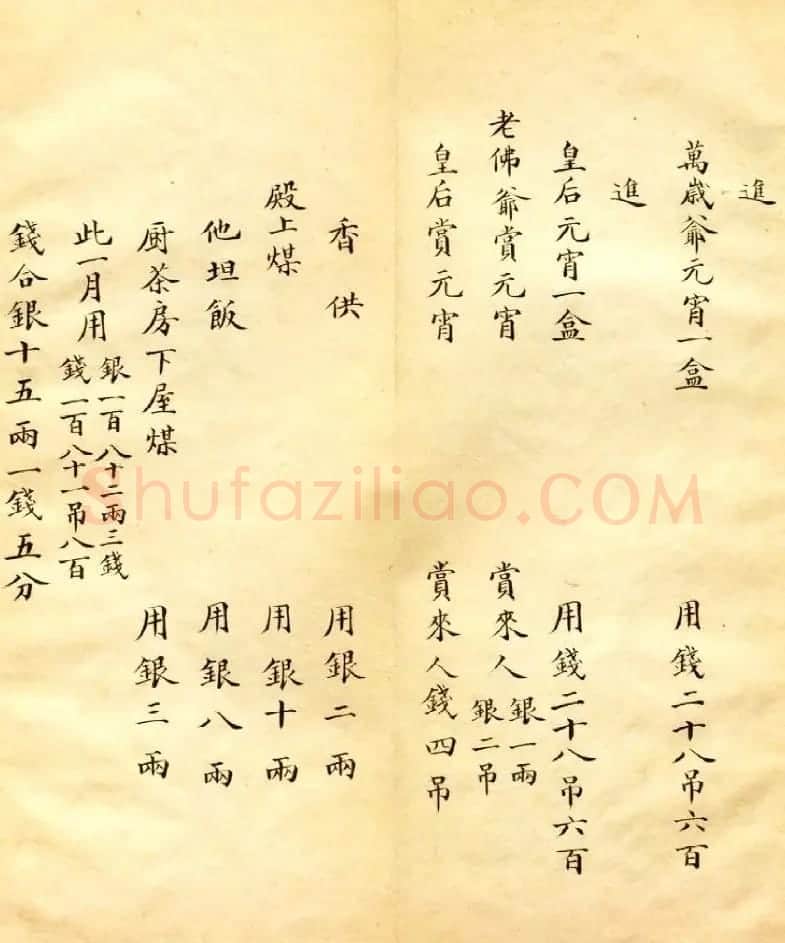 進
萬歲爺元宵一盒 用錢二十八吊六百
進
皇后元宵一盒 用錢二十八吊六百
老佛爺賞元宵 賞來人 銀一兩 銀二吊
皇后賞元宵 賞來人錢四吊
香供 用銀二兩
殿上煤 用銀十兩
他坦飯 用銀八兩
厨茶房下屋煤 用銀三兩
此一月用 銀一百八十二兩三錢 錢一百八十一吊八百
錢合銀十五兩一錢五分
Shufaziliao.COM